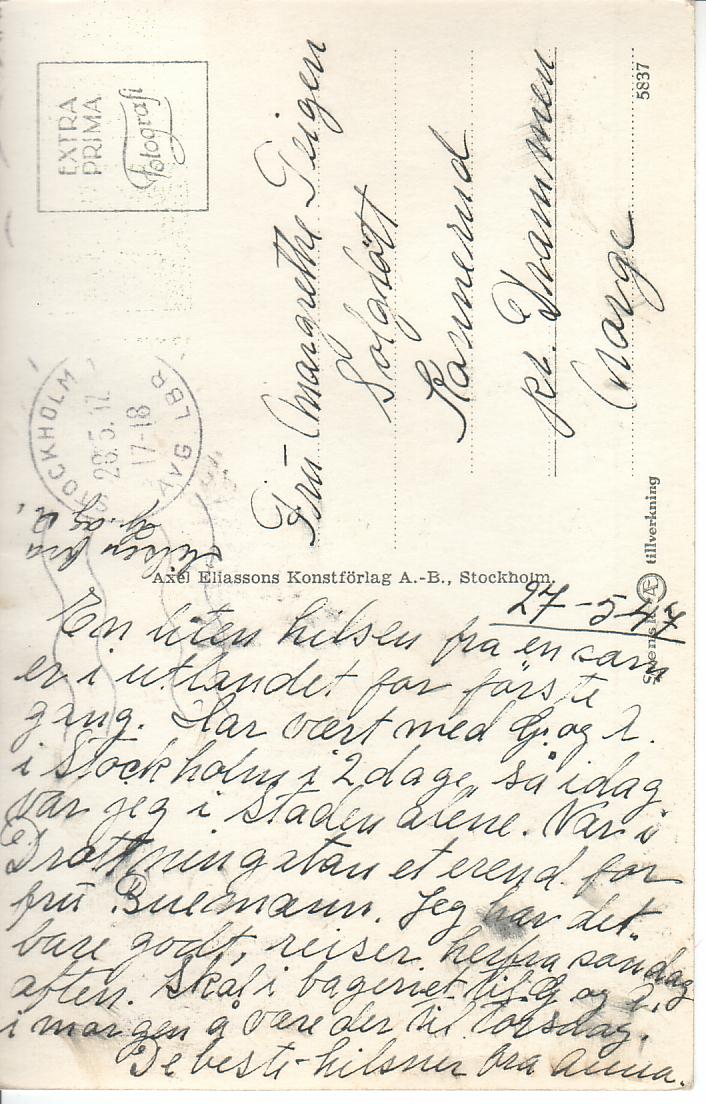 EXTRA
PRIMA
Fotografi
STOCKHOLM
28.5.47
17-18
AVG LBR
Fru Margrethe Teigen
Solglött
Konnerud
pr. Drammen
Norge
5837
Axel Eliassons Konstförlag A.-B., Stockholm.
Svensk tillverkning
27-5 47
En liten hilsen fra en som
er i utlandet for förste
gang. Har vært med G. og A.
i Stockholm i 2 dage, så idag
var jeg i staden alene. Var i
Drottningatan et erend for
fru Buemann. Jeg har det
bare godt, reiser herfra søndag
aften. Skal i bageriet til G og A.
i morgen å være der til Torsdag.
De beste hilsner fra Anna.
Hilsen fra
G. og A.